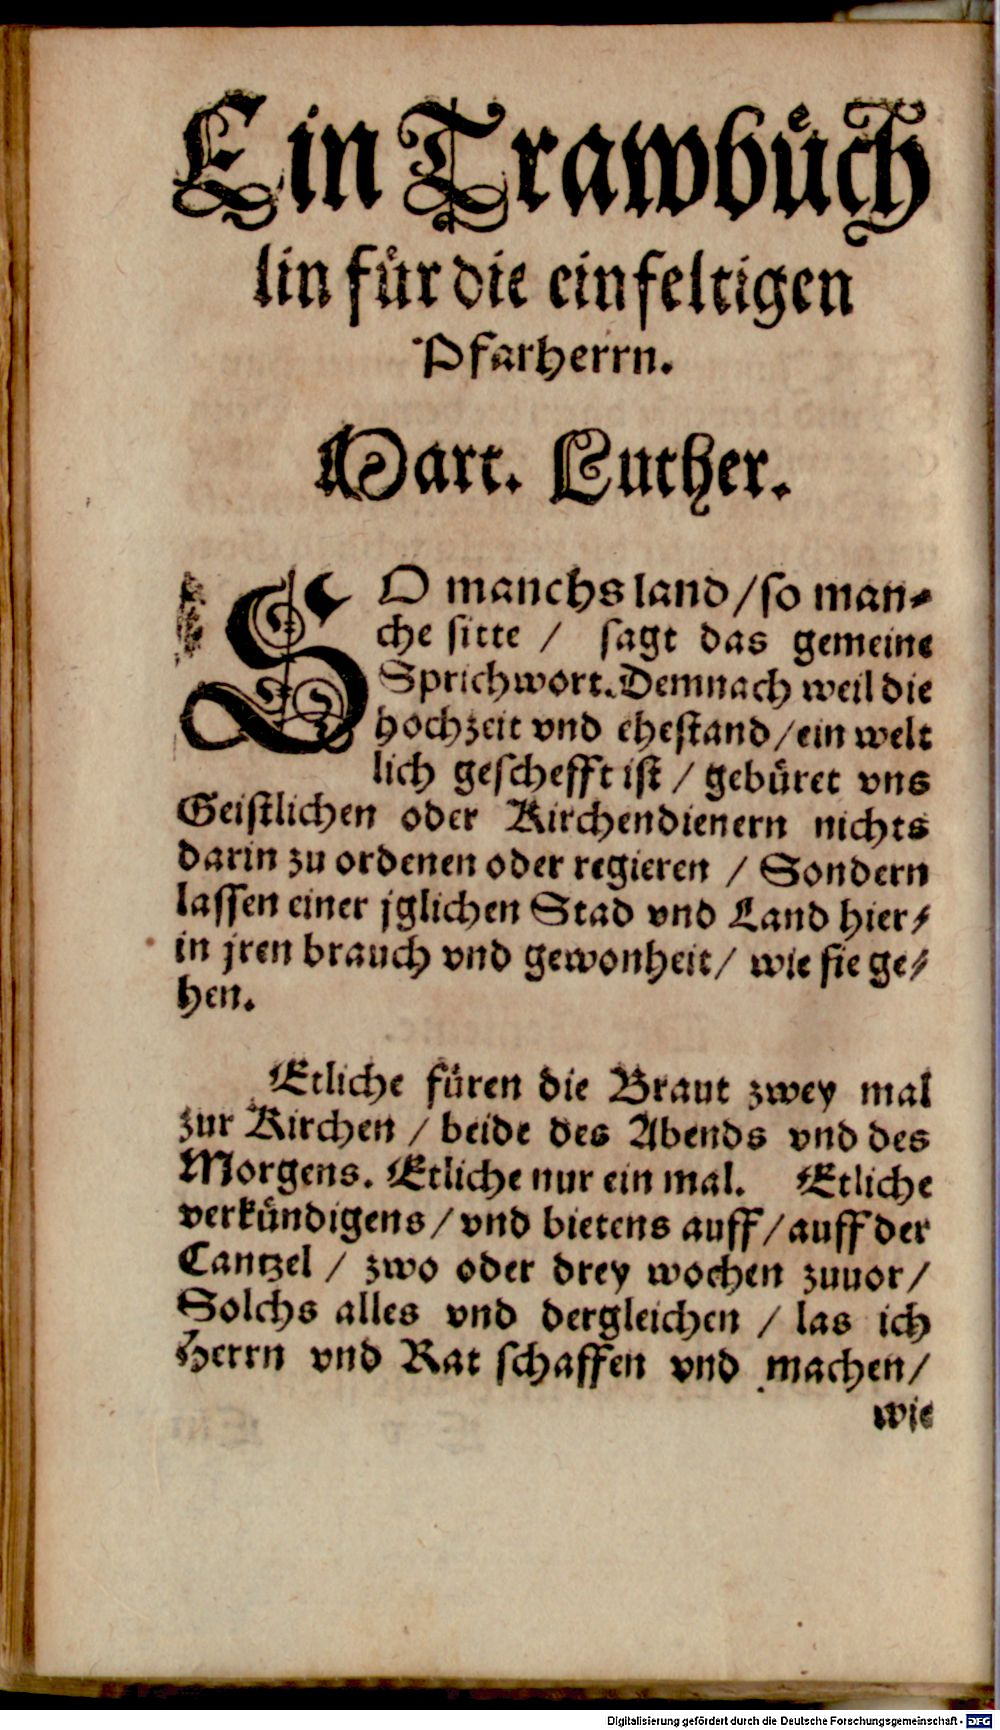 Ein Trawbuͤch
lin fuͤr die einfeltigen
Pfarherrn.
Mart. Luther.
SO manchs land / so man⸗
che sitte / sagt das gemeine
Sprichwort. Demnach weil die
hochzeit vnd ehestand / ein welt
lich geschefft ist / gebuͤret vns
Geistlichen oder Kirchendienern nichts
darin zu ordenen oder regieren / Sondern
lassen einer jglichen Stad vnd Land hier⸗
in jren brauch vnd gewonheit / wie sie ge⸗
hen.
Etliche fuͤren die Braut zwey mal
zur Kirchen / beide des Abends vnd des
Morgens. Etliche nur ein mal. Etliche
verkuͤndigens / vnd bietens auff / auff der
Cantzel / zwo oder drey wochen zuuor /
Solchs alles vnd dergleichen / las ich
Herrn vnd Rat schaffen vnd machen /
wie
Digitalisierung gefördert durch die Deutsche Forschungsgemeinschaft - DFG